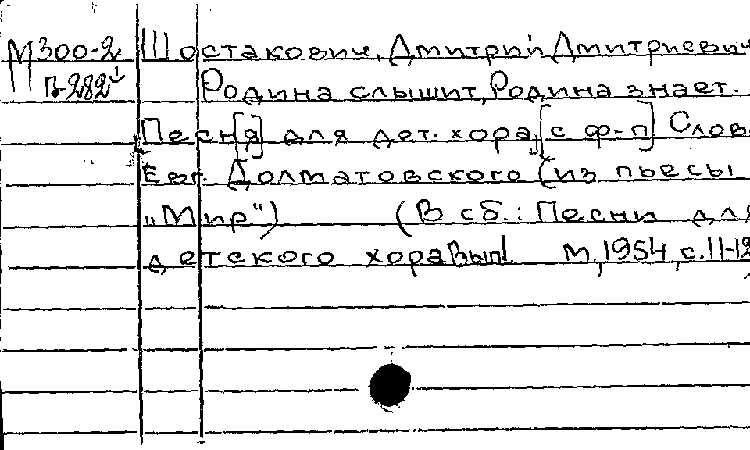 М300-2 Шостакович, Дмитрий Дмитриевич
П-282¹ Родина слышит, Родина знает.
Песн[я] для дет. хора [с ф-п] Слов
Евг. Долматовского (из пьесы
„Мир") (В сб.: Песни для
детского хора Вып1 М, 1954, с. 11-12